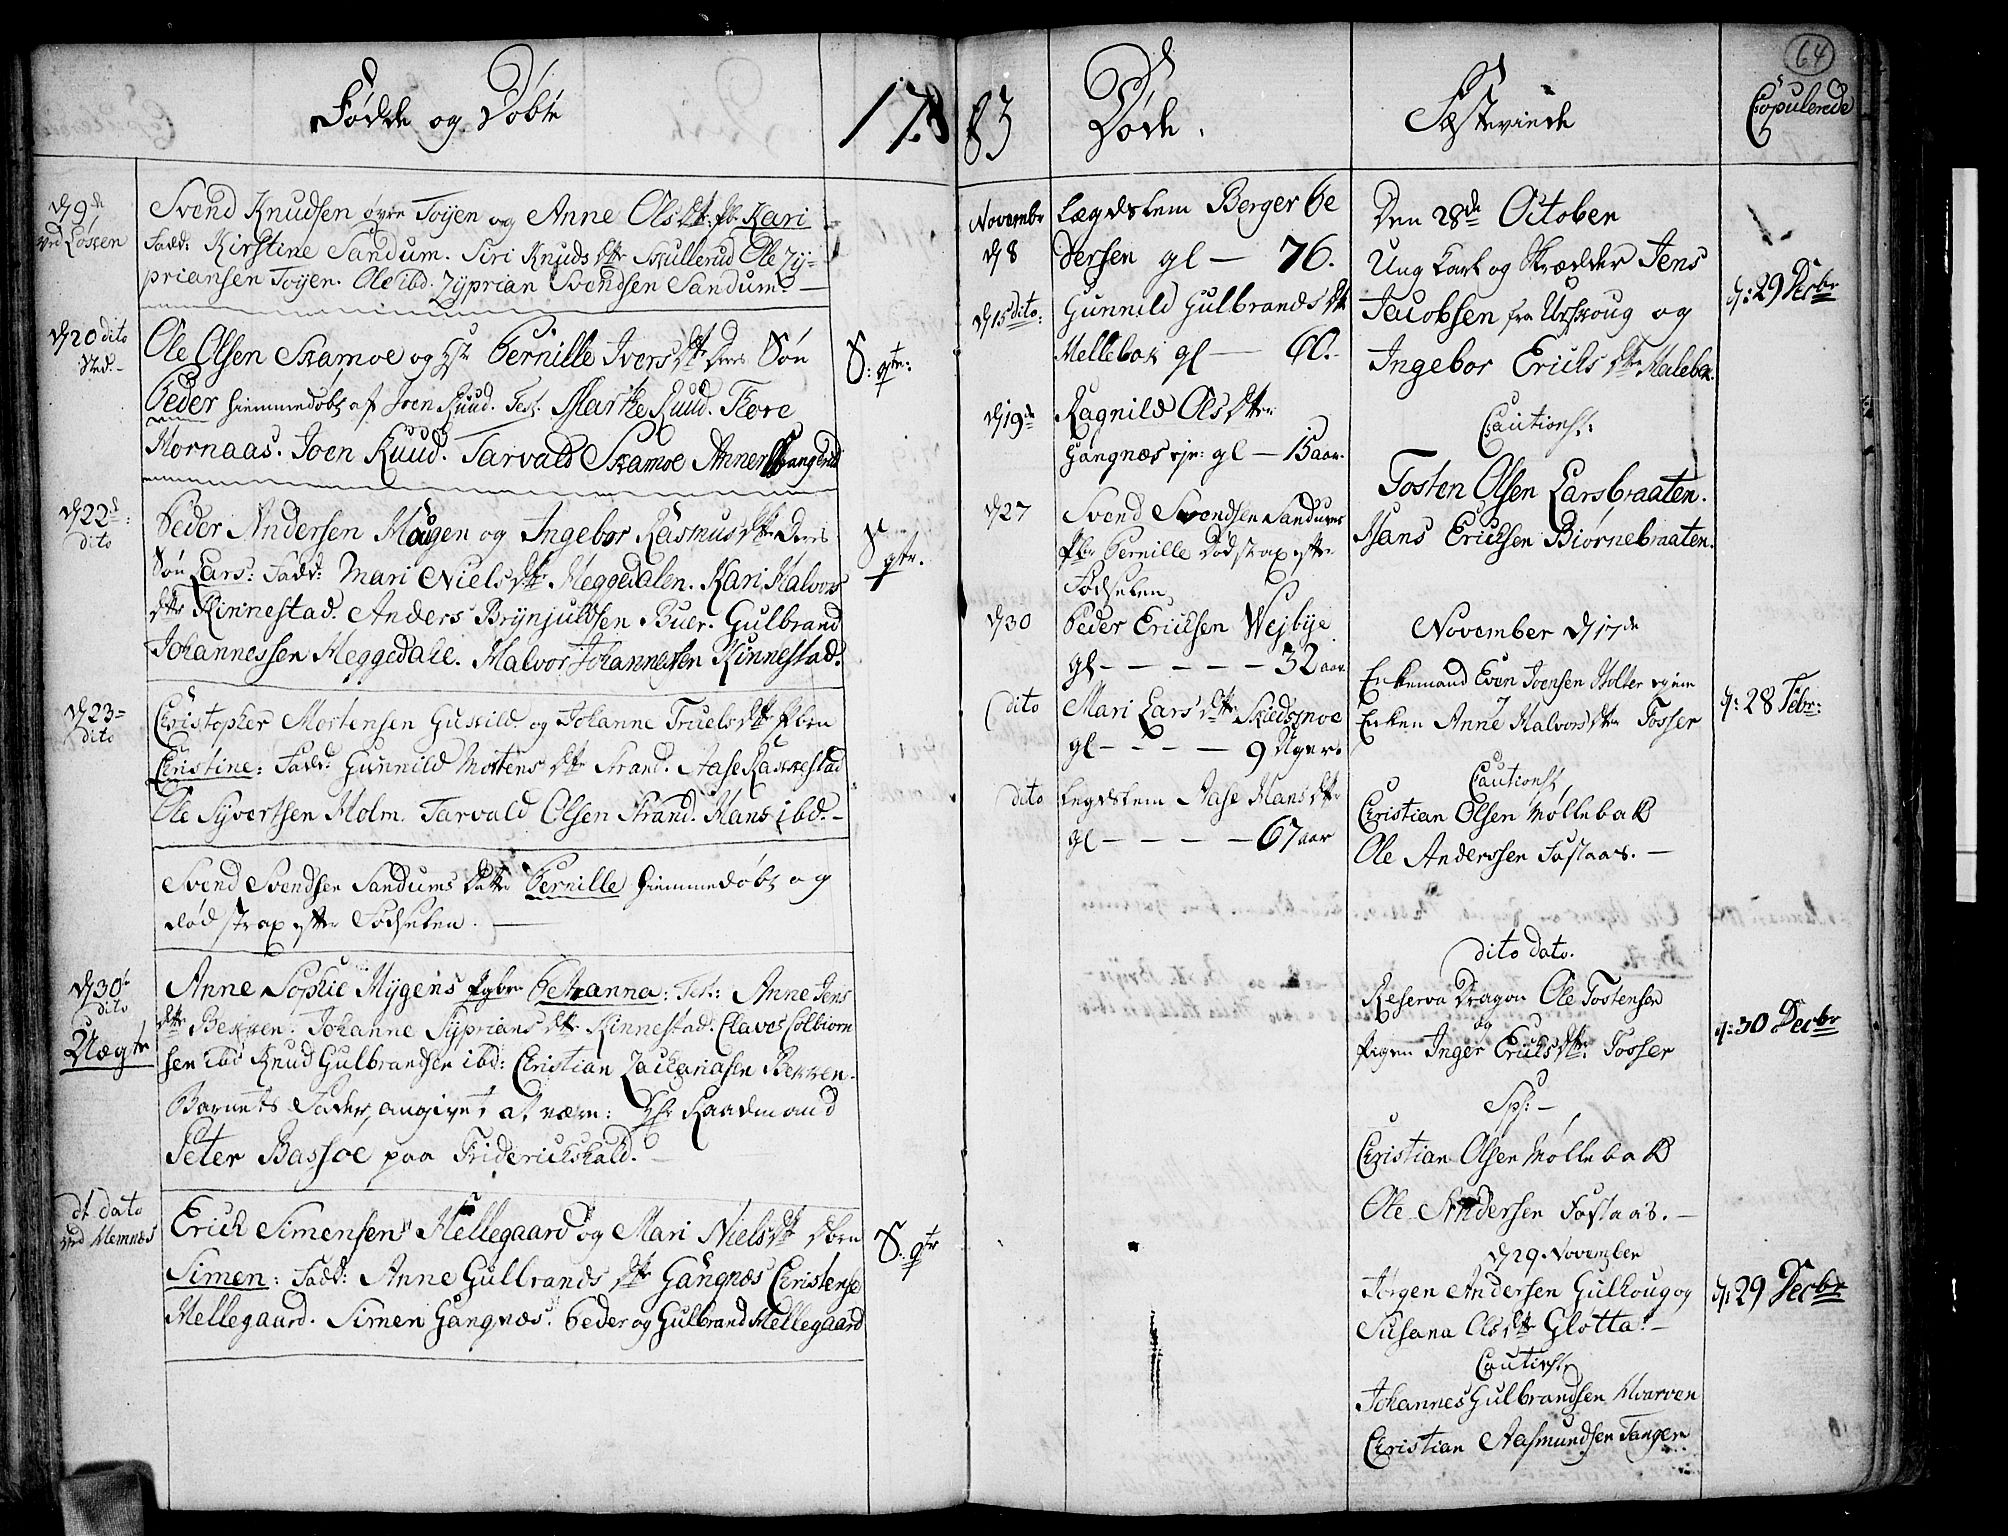 64
Fødde og Døbte
1783
Døde.
Fæstevinde
Copulerede
d 9de
ved Løken
Svend Knudsen øvre Toÿen og Anne Olsdttr: pb. Kari
Fadd: Kirstine Sandum. Siri Knudsdttr Skullerud Ole Zÿ-
priansen Toÿen. Ole ibd. Zÿprian Svendsen Sandum. —
d 20 dito
Sted. -
Ole Olsen Skamoe og Hst Pernille Iversdttr Ders Søn
Peder hiemmedøbt af Joen Ruud. Test. Marthe Ruud. Tore
Hornaas. Joen Ruud. Tarvald Skamoe Anne
S: gtr:
d 22d:
dito
Peder Andersen Haugen og Ingebor Rasmusdttr Ders
Søn Lars: Fadd: Mari Nielsdttr Heggedalen. Kari Halvors
dttr Kinnestad. Anders Brÿnjuldsen Buer. Gulbrand
Johannessen Heggedale. Halvor Johannesen Kinnestad.
S
gtr.
d 23-
dito
Christopher Mortensen Gukild og Johanne Truelsdttr
Christine: Fadd: Gunnild Mortensdttr Strand. Aase Kakkestad
Ole Sÿvertsen Holm. Tarvald Olsen Strand. Hans ibd. -
Svend Svendsen Sandums Datter Pernille hiemmedøbt og
død strax efter Fødselen. —
d 30t
dito
Uægte
Anne Sophie Hÿgens pgbr Petranna: Test: Anne Jens
dttr Bekken. Johanne Sÿpriansdttr Kinnestad. Claves Colbiorn
sen ibd Knud Gulbrandsen ibd: Christian Zachariasen Bekken.
Barnets Fader, angivet at være: Hr Raadmand
Peter Bassoe paa Friderichshald. —
dt dato
ved Hemnæs
Erich Simensen Hellegaard og Mari Nielsdttr dbrn
Simen: Fadd: Anne Gulbrandsdttr Gangnæs Christense
Hellegaard. Simen Gangnæs. Peder og Gulbrand Hellegaard
S. gtr
Novembr
d 8
Lægdslem Berger Pe
dersen gl — 76.
d 15 dito:
Gunnild Gulbrandsdttr
Mellebøk gl — 60.
d 19d
Ragnild Olsdttr
Gangnæs eje: gl — 15 aar.
d 27
Svend Svendsen Sandums
pbr Pernille død strax efter
Fødselen
d 30
Peder Ericksen Wejbÿe
gl - - - - - 32 aar
dito
Mari Larsdttr Skiedsmoe
gl - - - - 9 Uger.
dito
Legdslem Aase Hansdttr
gl - - - - 67 aar
Den 28de October
Ung Karl og Skrædder Jens
Jacobsen fra Urskoug og
Ingebor Ericksdttr Malebek.
Cautionst:
Tosten Olsen Larsbraaten.
Hans Ericksen Biørnebraaten.
d: 29 Decbr
November d 17de
Enkemand Even Joensen Holter
Enken Anne Halvorsdttr Tosser
Cautionst,
Christian Olsen Møllebak
Ole Anderssen Fosfaas. —
d: 28 Febr:
dito dato.
Reserva Dragon Ole Tostensen
og
Pigen Inger Ericksdttr Tosser
Sps: —
Christian Olsen Møllebak
Ole Andersen Fosfaas. —
d: 30 Decbr
d 29 November
Jørgen Andersen Gulhoug og
Susana Olsdttr Glotta. —
Cautionst,
Johannes Gulbrandsen Hvarven
Christian Aasmundsen Tangen
d: 29 Decbr